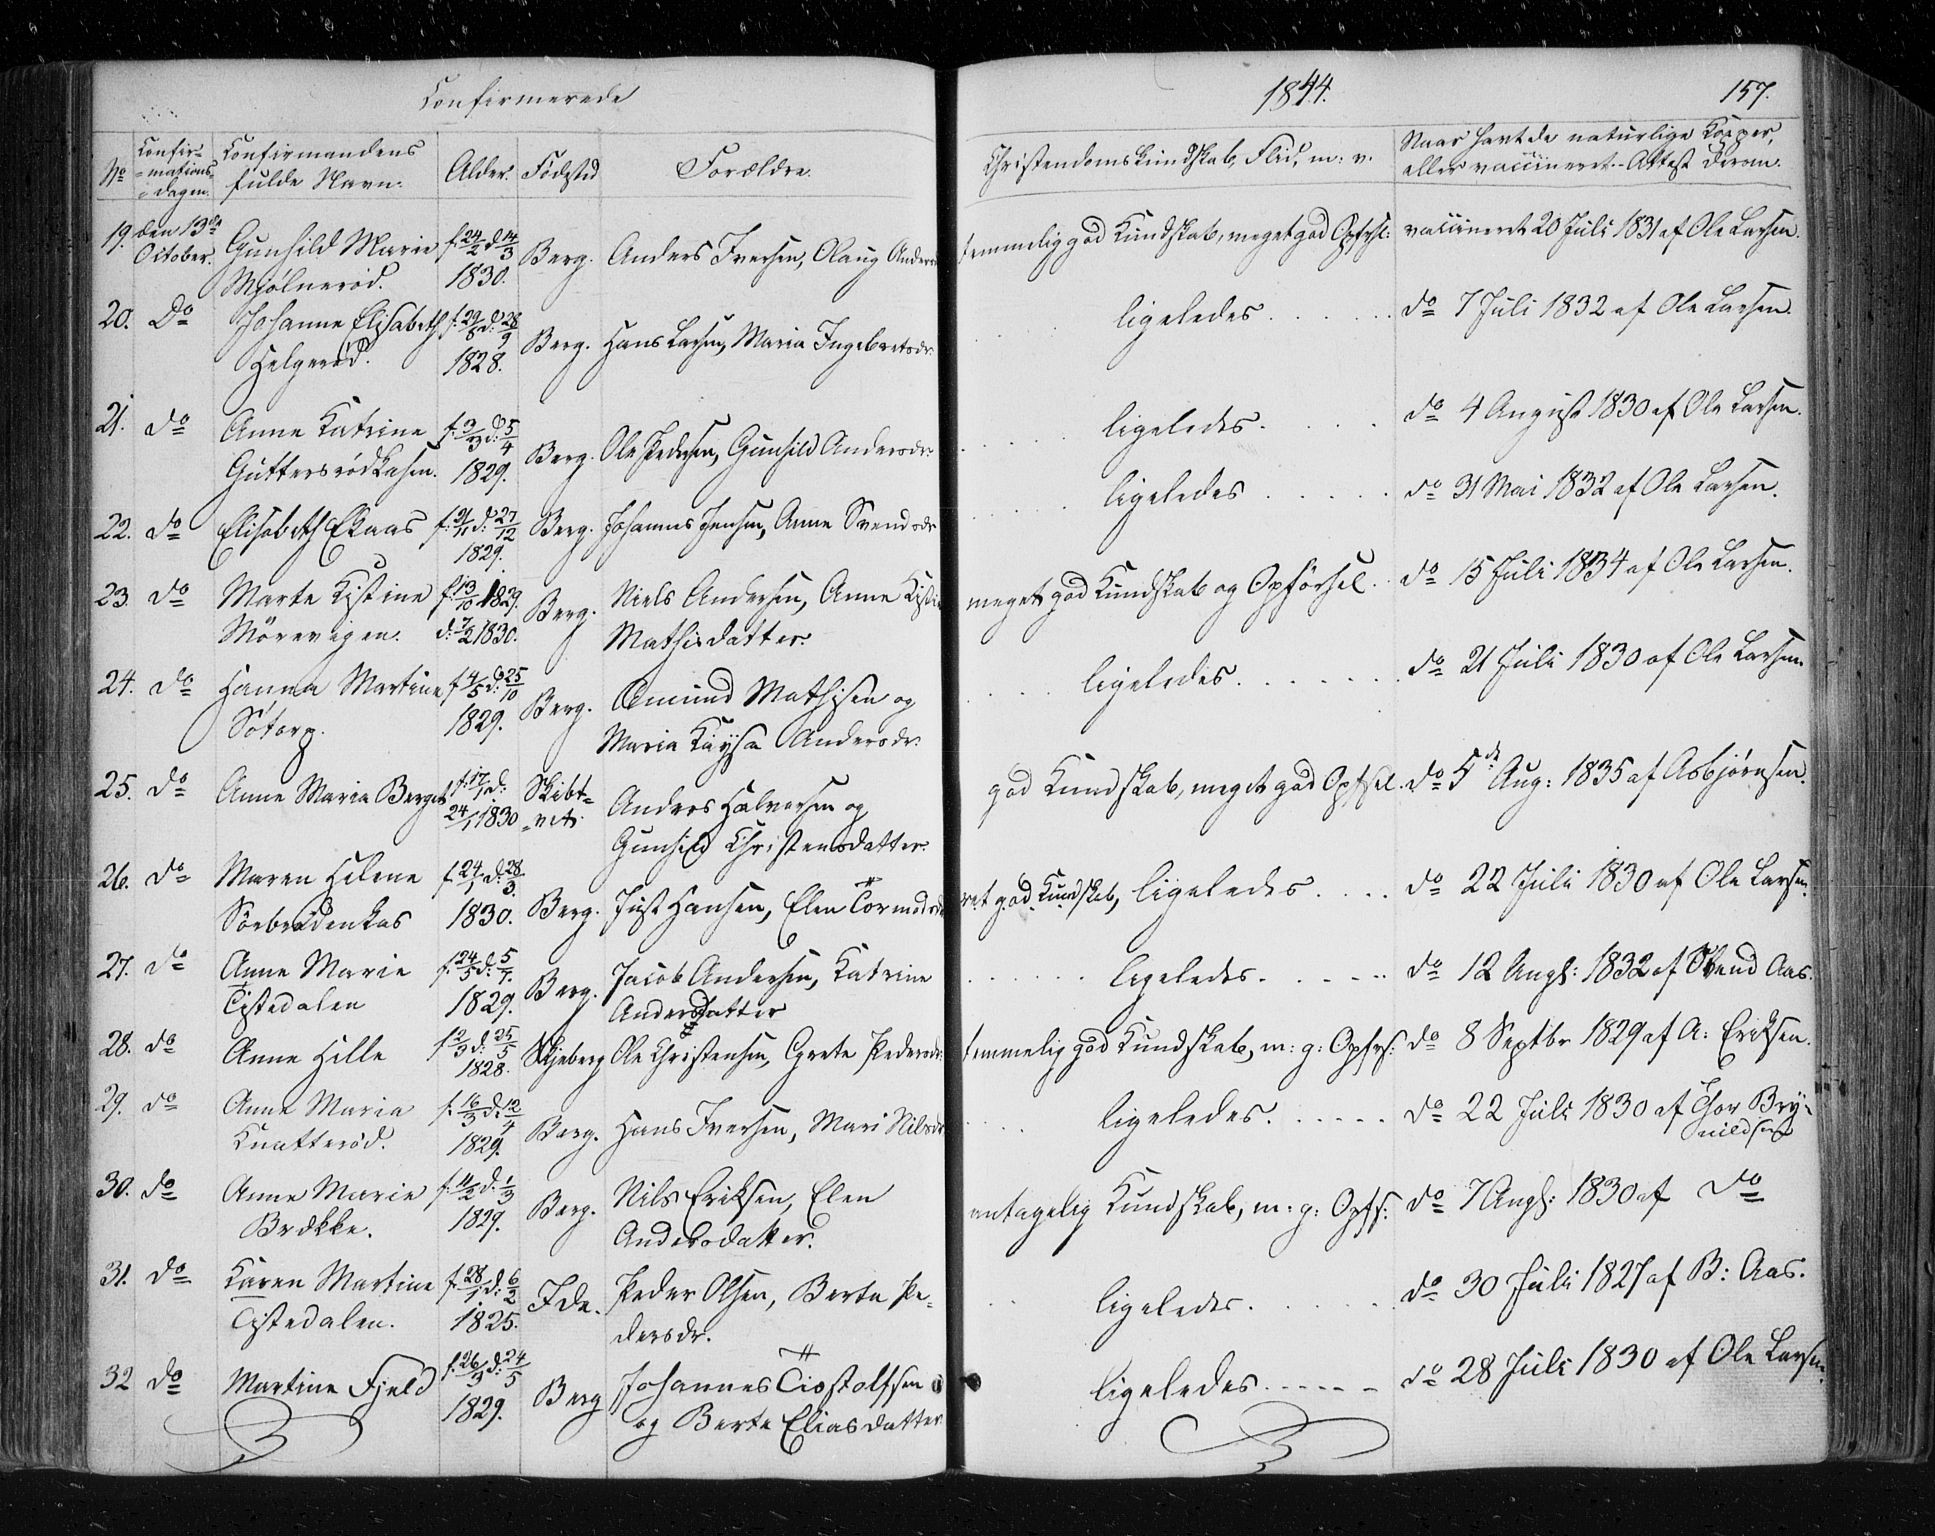 Confirmerede
1844.
157.
No
Confir-
-mations-
-dagen.
Confirmandens
fulde Navn.
Alder.
Fødested
Forældre.
Christendomskundskab, Flid, m: v.
Naar havt de naturlige Kopper,
eller vaccineret. - Attest derom.
19. den 13de October. Gunhild Marie f. 24/2 d. 14/3 Berg. Anders Iversen, Olaug Anders temmelig god Kundskab, meget god Opførs: vaccineret 20 Juli 1831 af Ole Larsen.
Mjølnerød. 1830.
20. Do Johanne Elisabeth f. 29/8 d. 28/9 Berg. Hans Larsen, Maria Ingebretsdr. ligeledes do 7 Juli 1832 af Ole Larsen.
Helgerød. 1828.
21. do Anne Katrine f. 3/3 d. 5/4 Berg. Ole Pedersen, Gunhild Andersdr. ligeledes. do 4 August 1830 af Ole Larsen.
Guttersrødkasen. 1829.
22. do Elisabeth Ekaas d. 27/12 Berg. Johannes Jensen, Anne Svendsdr ligeledes do 31 Mai 1832 af Ole Larsen.
1829.
23. do Marte Kistine f. 13/10 1829. Berg. Niels Andersen, Anne Kistine meget god Kundskab og Opførsel. do 15 Juli 1834 af Ole Larsen.
Mørevigen. d. 7/2 1830. Mathisdatter.
24. do Hanna Martine f. 4/5 d. 25/10 Berg. Amund Mathisen og ligeledes. do 21 Juli 1830 af Ole Larsen
Søtorp. 1829. Maria Kaysa Andersdr.
25. do Anne Maria Berget f. 17/1 d. Skibt- Andres Halvorsen og god Kundskab, meget god Opfsel. do 5de Aug: 1835 af Asbjørnsen.
24/1 1830 -vet. Gunhild Christensdatter.
26. do Maren Helene f. 24/1 d. 28/3 Berg. Just Hansen, Elen Tormods god Kundskab, ligeledes do 22 Juli 1830 af Ole Larsen.
Sørbrødenkas 1830.
27. do Anne Marie f. 24/5 d. 5/7 Berg. Jacob Andersen, Katrine ligeledes. do 12 Augs: 1832 af Svend Aas.
Tistedalen 1829. Andersdatter
28. do Anne Hille f. 2/3 d. 25/5 Skjeberg Ole Christensen, Grete Pedersdr. temmelig god Kundskab, m: g: Opførs: do 8 Septbr 1829 af A: Eriksen.
1828.
29. do Anne Maria f. 16/3 d. 12/4 Berg. Hans Iversen, Mari Nilsdr ligeledes. do 22 Juli 1830 af Thor Bry-
Knatterød. 1829. nildsen
30. do Anne Marie f. 11/2 d. 1/3 Berg. Nils Eriksen, Elen antagelig Kundskab, m: g: Opfs: do 7 Augs: 1830 af do
Brække. 1829. Andersdatter.
31. do Karen Martine f. 28/1 d. 6/2 Ide. Peder Olsen, Berte Pe- ligeledes. do 30 Juli 1827 af B: Aas.
Tistedalen. 1825. dersdr.
32 do Martine Fjeld f. 26/3 d. 24/5 Berg Johannes Tiostolfsen ligeledes do 28 Juli 1830 af Ole Larsen.
1829. og Berte Eliasdatter